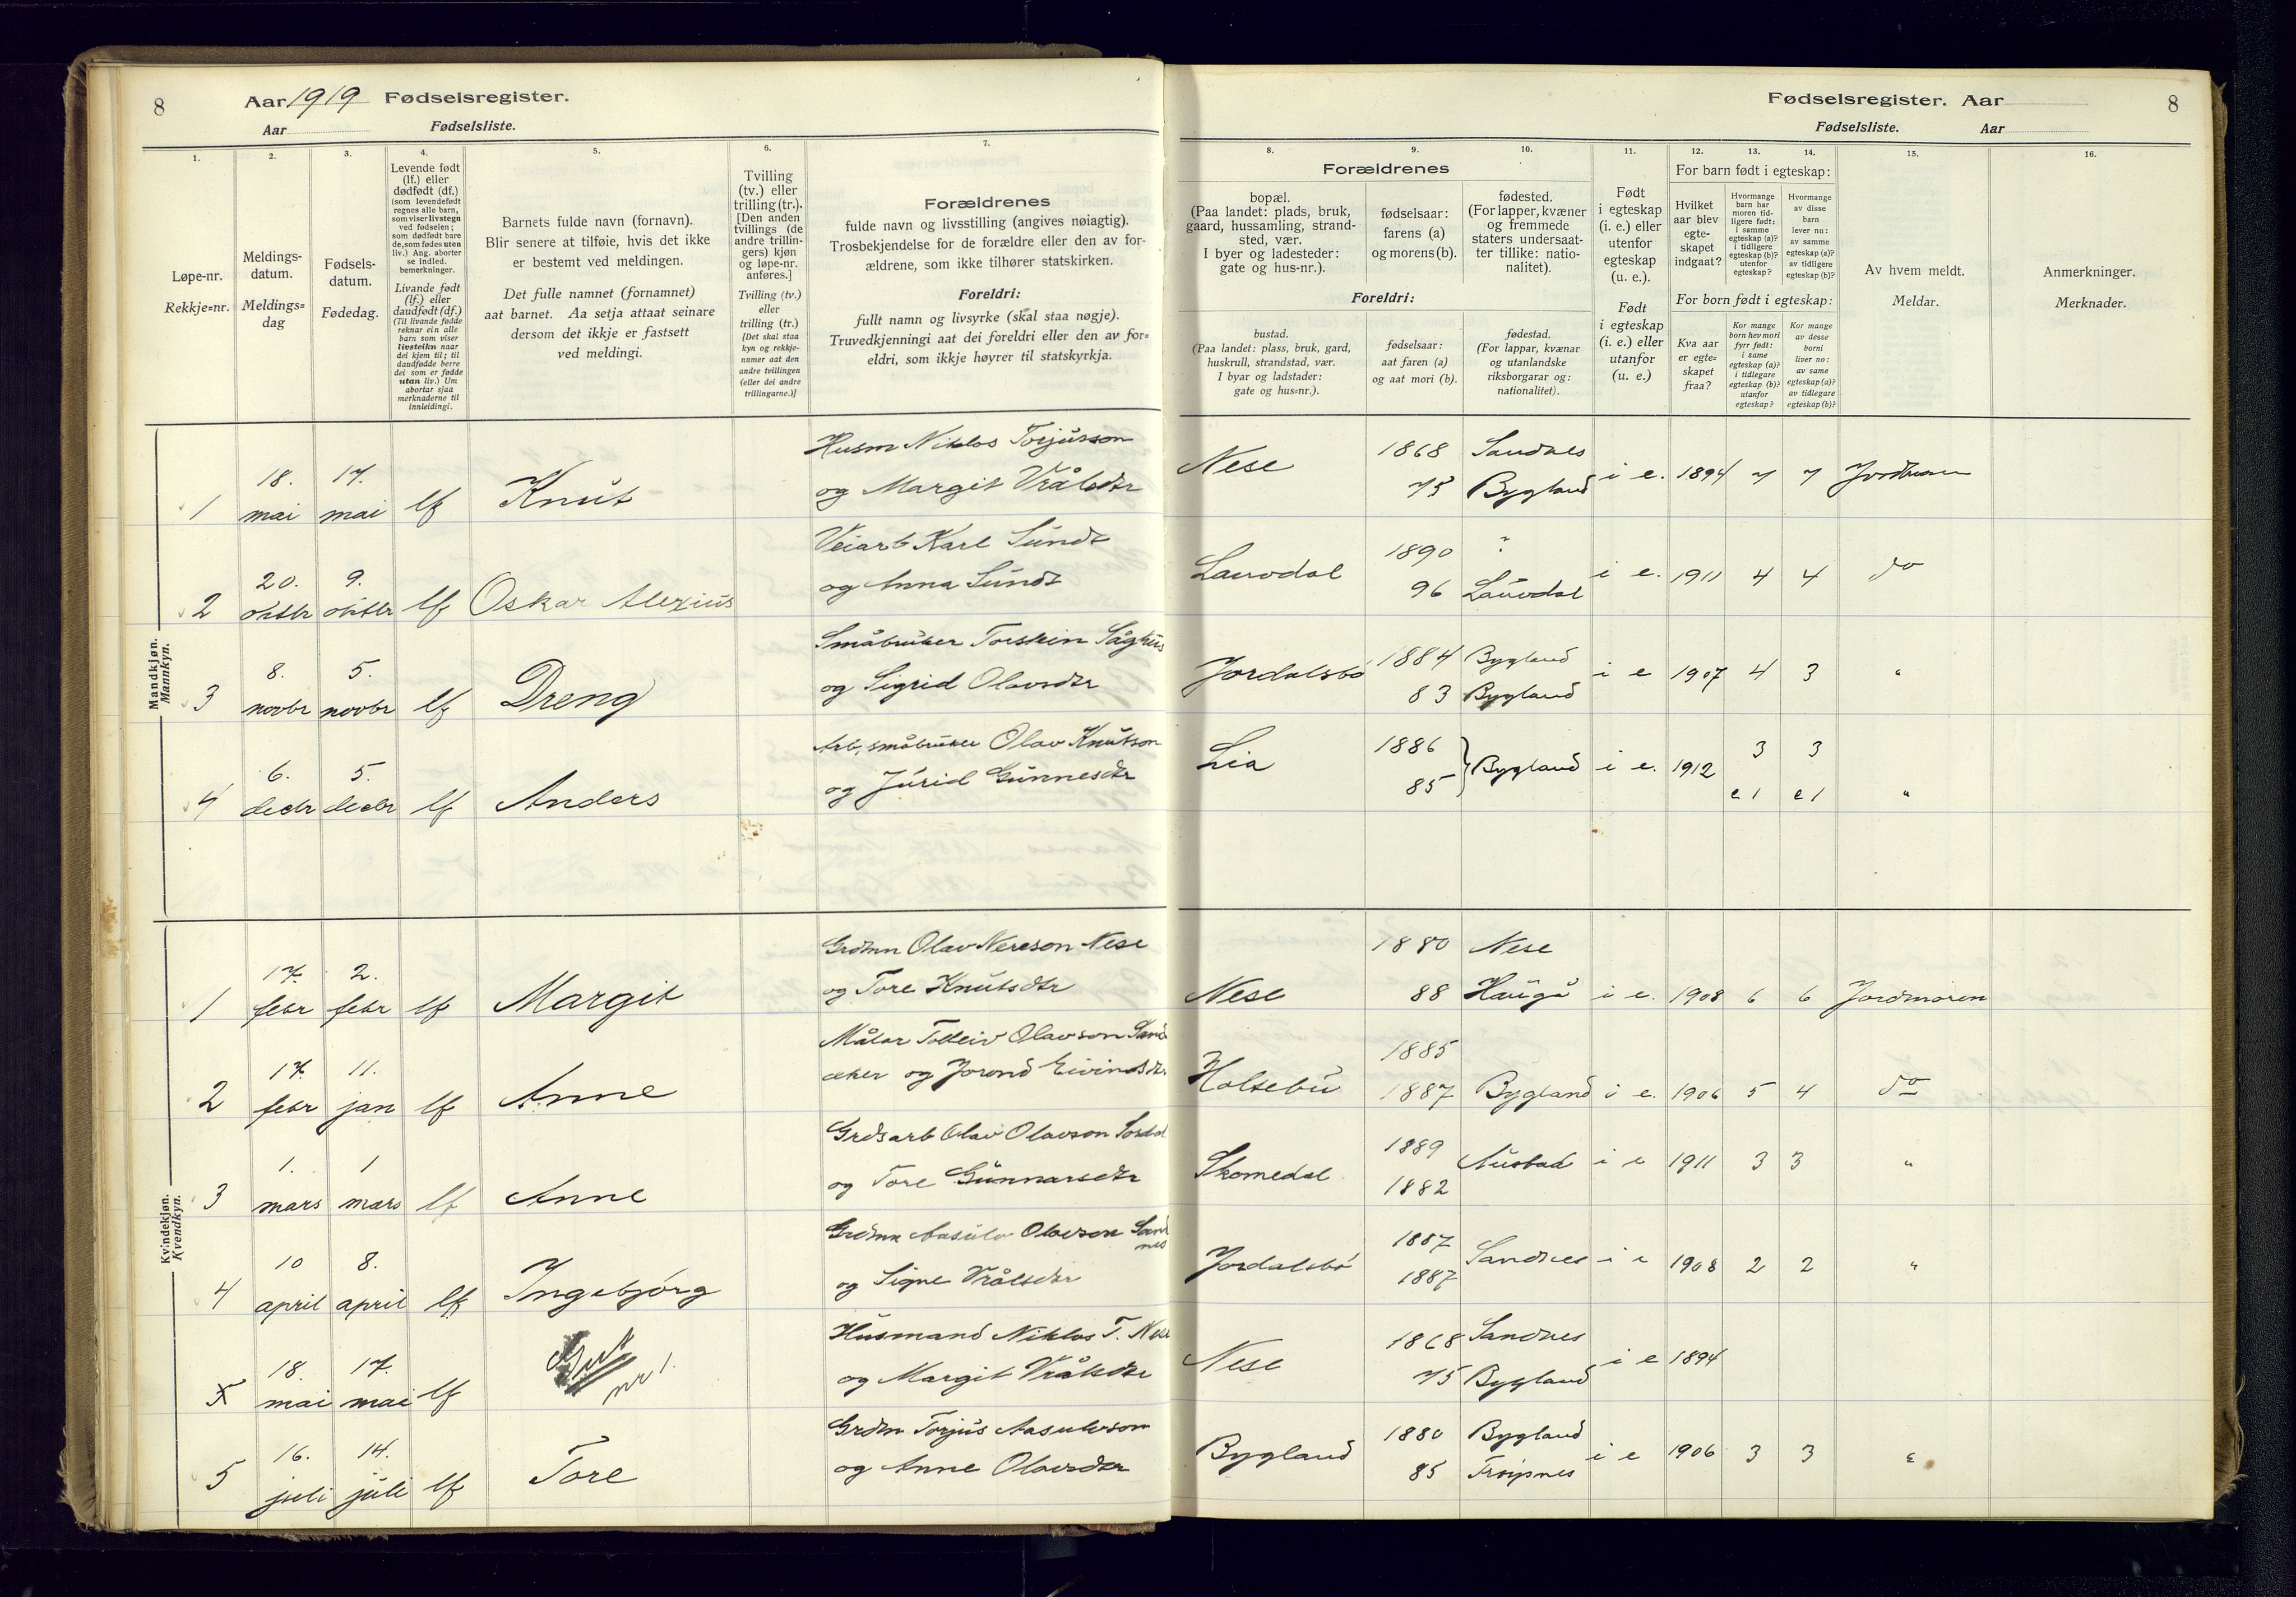 8 Aar 1919 Fødselsregister.
Aar Fødselsliste.
Fødselsregister. Aar 8
Fødselsliste. Aar
1. 2. 3. 4. 5. 6. 7.
Løpe-nr.
Rekkje=nr.
Meldings-
datum.
Meldings=
dag
Fødsels-
datum.
Fødedag.
Levende født
(lf.) eller
dødfødt (df.)
(som levendefødt
regnes alle barn,
som viser livstegn
ved fødselen;
som dødfødt bare
de, som fødes uten
liv.) Ang. aborter
se indled.
bemerkninger.
Livande født
(lf.) eller
daudfødt (df.)
(Til livande fødde
reknar ein alle
barn som viser
livsteikn naar
dei kjem til; til
daudfødde berre
dei som er fødde
utan liv.) Um
abortar sjaa
merknaderne til
innleidingi.
Barnets fulde navn (fornavn).
Blir senere at tilføie, hvis det ikke
er bestemt ved meldingen.
Det fulle namnet (fornamnet)
aat barnet. Aa setja attaat seinare
dersom det ikkje er fastsett
ved meldingi.
Tvilling
(tv.) eller
trilling (tr.).
[Den anden
tvillings (de
andre trillin-
gers) kjøn
og løpe-nr.
anføres.]
Tvilling (tv.)
eller
trilling (tr.)
[Det skal staa
kyn og rekkje-
numer aat den
andre tvillingen
(eller dei andre
trillingarne.)]
Forældrenes
fulde navn og livsstilling (angives nøiagtig).
Trosbekjendelse for de forældre eller den av for-
ældrene, som ikke tilhører statskirken.
Foreldri:
fullt namn og livsyrke (skal staa nøgje).
Truvedkjenningi aat dei foreldri eller den av for=
eldri, som ikkje høyrer til statskyrkja.
8. 9. 10. 11. 12. 13. 14. 15. 16.
Forældrenes
bopæl.
(Paa landet: plads, bruk,
gaard, hussamling, strand-
sted, vær.
I byer og ladesteder:
gate og hus-nr.).
fødselsaar:
farens (a)
og morens (b).
fødested.
(For lapper, kvæner
og fremmede
staters undersaat-
ter tillike: natio-
nalitet).
Foreldri:
bustad.
(Paa landet: plass, bruk, gard,
huskrull, strandstad, vær.
I byar og ladstader:
gate og hus=nr.).
fødselsaar:
aat faren (a)
og aat mori (b).
fødestad.
(For lappar, kvænar
og utanlandske
riksborgarar og:
nationalitet).
Født
i egteskap
(i. e.) eller
utenfor
egteskap
(u. e.).
Født
i egteskap
(i. e.) eller
utanfor
(u. e.)
For barn født i egteskap:
Hvilket
aar blev
egte-
skapet
indgaat?
Hvormange
barn har
moren tid-
ligere født:
i samme
egteskap (a)?
i tidligere
egteskap (b)?
utenfor
egteskap?
Hvormange
av disse
barn
lever nu:
av samme
egteskap (a)?
av tidligere
egteskap (b)?
For born født i egteskap:
Kva aar
er egte=
skapet
fraa?
Kor mange
born hev mori
fyrr født:
i same
egteskap (a)?
i tidlegare
egteskap (b)?
utanfor
egteskap?
Kor mange
av desse
borni
liver no:
av same
egteskap (a)?
av tidlegare
egteskap (b)?
Av hvem meldt.
Meldar.
Anmerkninger.
Merknader.
Mandkjøn.
Mannkyn.
Husm Niklos Torjusson 1868 Sandnes
1 18. mai 17. mai lf Knut og Margit Vrålsdtr Nese 75 Bygland i e. 1894 7 7 Jordmoren
Veiarb Karl Sundt 1890 ?
2 20. oktbr 9. oktbr lf Oskar Alexius og Anna Sundt Lauvdal 96 Lauvdal i e. 1911 4 4 do
Småbruker Torskin Såghus 1884 Bygland
3 8. novbr 5. novbr lf Dreng og Sigrid Olavsdtr Jordalsbø 83 Bygland i e 1907 4 3 "
Arb, småbruker Olav Knutson 1886 3 3
4 6. decbr 5. decbr lf Anders og Jurid Gunnesdtr Lia 85 } Bygland i e. 1912 e 1 e 1 "
Kvindekjøn.
Kvendkyn.
Grdmn Olav Nereson Nese 1880 Nese
1 17. febr 2. febr lf Margit og Tore Knutsdtr Nese 88 Haugå i e. 1908 6 6 Jordmoren
Målar Tolleiv Olavson Sand 1885
2 17. febr 11. jan lf Anne æker og Jorond Eivindsdtr Holtebu 1887 Bygland i e. 1906 5 4 do
Grdsarb Olav Olavson 1889
3 1. mars 1 mars lf Anne og Tore Gunnarsdtr Skomedal 1882 Austad i e 1911 3 3 "
Grdmn Aasulv Olavson Sand
nes 1887
4 10 april 8. april lf Ingebjørg og Signe Vrålsdtr Jordalsbø 1887 Sandnes i e 1908 2 2 "
Husmand Niklos T. Nese 1868 Sandnes
5 18. mai 17. mai lf nr 1. og Margit Vrålsdtr Nese 75 Bygland i e 1894
Grdmn Torjus Aasulvson 1880 Bygland
5 16. juli 14. juli lf Tore og Anne Olavsdtr Bygland 85 Frøipnes i e 1906 3 3 "